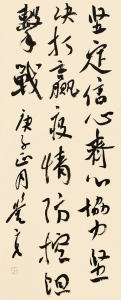 坚定信心齐心协力坚
决打赢疫情防控阻
击战 庚子正月